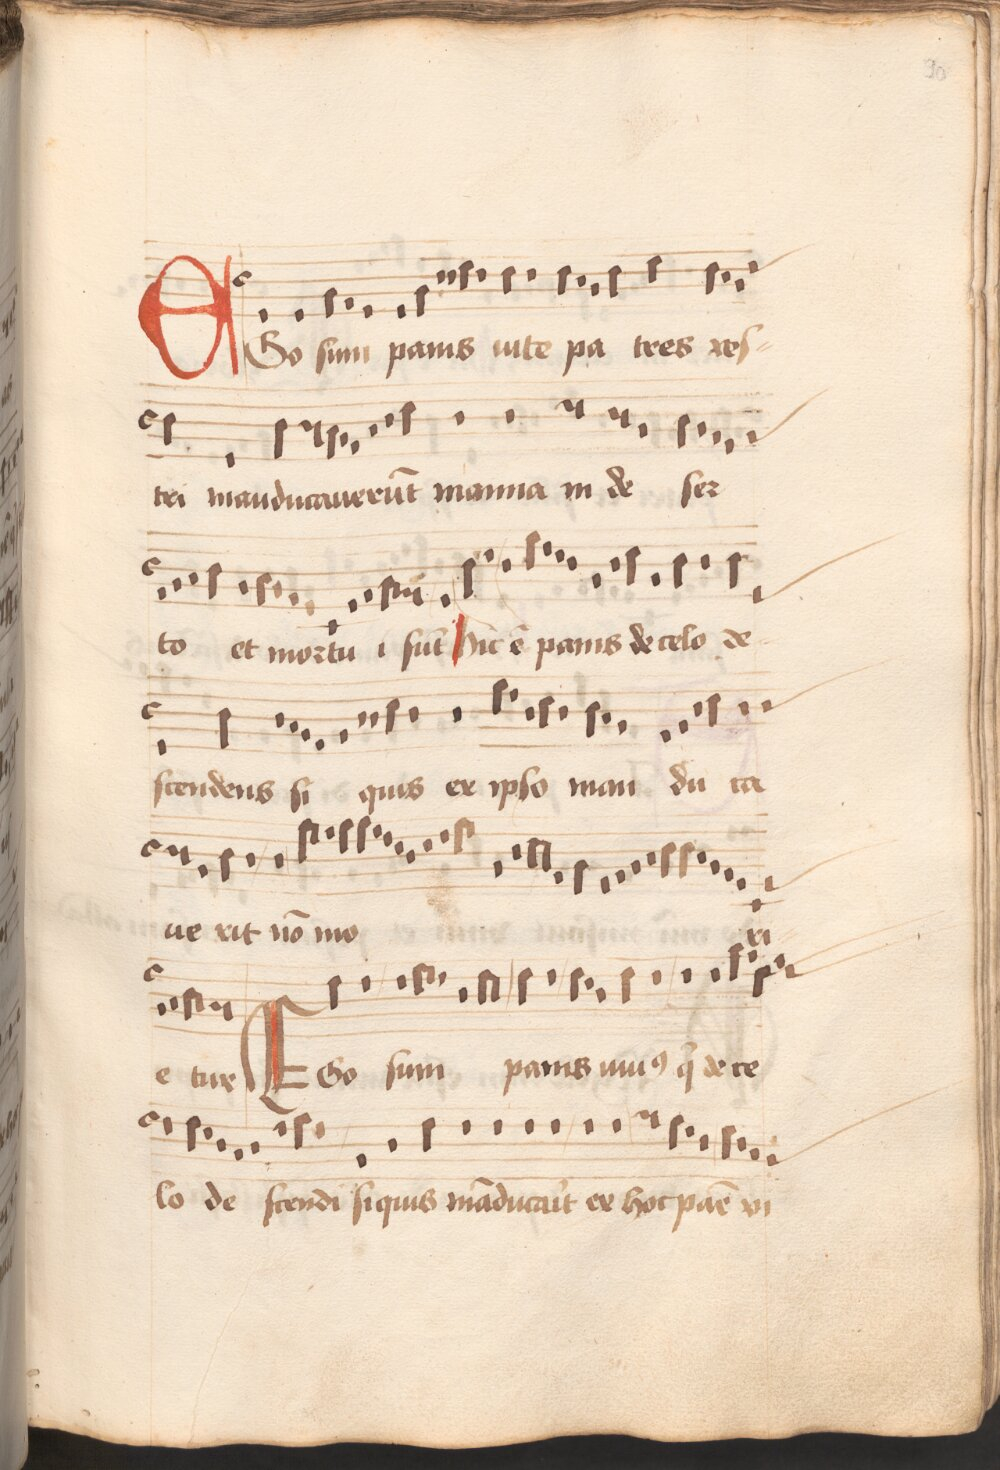 90
EGo sum panis uite pa tres ves-
tri manducauerūt manna in de ser
to et mortu i sūt Hic ē panis de celo de
scendens si quis ex ipso man du ca
ue rit nō mo ri
e tur EGo sum panis uiuꝰ q̄ de ce
lo de scendi si quis māducaūt ex hoc pāe vi